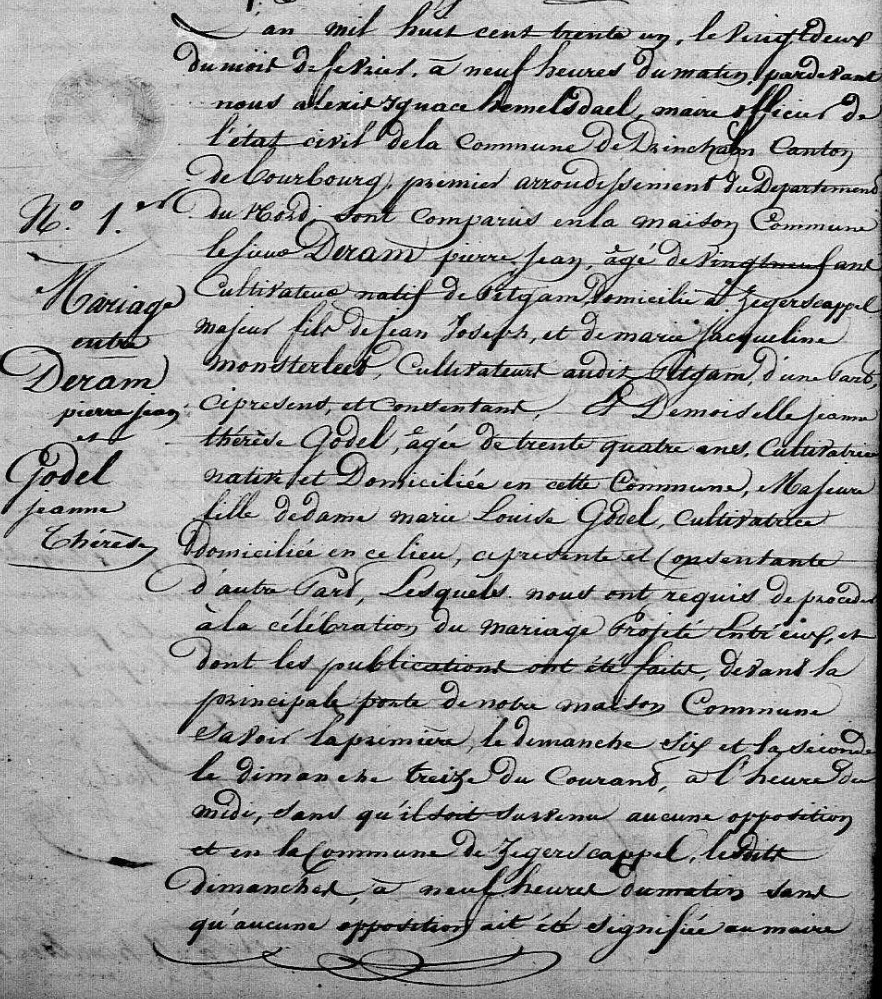 L'an mil huit cent trente un, le vingt deux
du mois de fevrier, à neuf heures du matin, pardevant
nous alexis Ignace hemelsdael, maire officier de
l'état civil de la Commune de Drincham Canton
de Bourbourg, premier arrondissement du Departement
du Nord, sont comparus en la maison Commune
le sieur Deram pierre Jean, âgé de vingt neuf ans
Cultivateur natif de Pitgam, Domicilié à Zegerscappel
majeur fils de Jean Joseph, et de marie Jacqueline
monsterleet, Cultivateurs audit Pitgam, d'une Part,
cipresens, et consentans, Et Demoiselle jeanne
thérèse Godel, âgée de trente quatre ans, Cultivatrice
native et Domiciliée en cette Commune, Majeure
fille de dame marie Louise Godel, cultivatrice
domiciliée en ce lieu, cipresente et Consentante
d'autre Part, Lesquels nous ont requis de procéder
à la célébration du mariage Projeté Entr'eux, et
dont les publications ont été faites, devant la
principale porte de notre maison Commune
Savoir la première, le dimanche six et la seconde
le dimanche treize du Courant, à l'heure de
midi, sans qu'il soit survenu aucune opposition
et en la Commune de Zegerscappel, lesdits
dimanches, à neuf heures du matin sans
qu'aucune opposition ait été signifiée au maire
N.º 1.er
Mariage
entre
Deram
pierre jean
et
Godel
jeanne
Thérèse